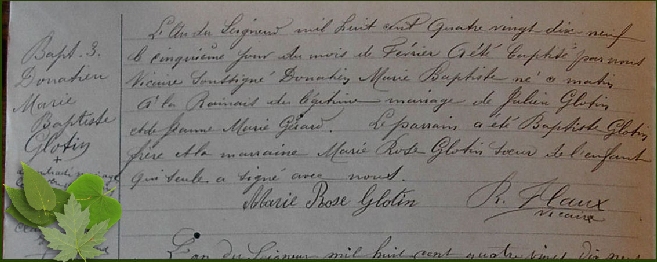 Bapt. 3.
Donatien
Marie
Baptiste
Glotin
+
L'an du Seigneur mil huit cent quatre vingt-dix neuf
le cinquième jour du mois de Février a été baptisé par nous
Vicaire soussigné Donatien Marie Baptiste né ce matin
à la Romais du légitime mariage de Julien Glotin
et de Jeanne Marie Girard. Le parrain a été Baptiste Glotin
frère et la marraine Marie Rose Glotin sœur de l'enfant
qui seule a signé avec nous.
Marie Rose Glotin R. Flaux
vicaire
L'an du Seigneur mil huit cent quatre vingt dix neuf